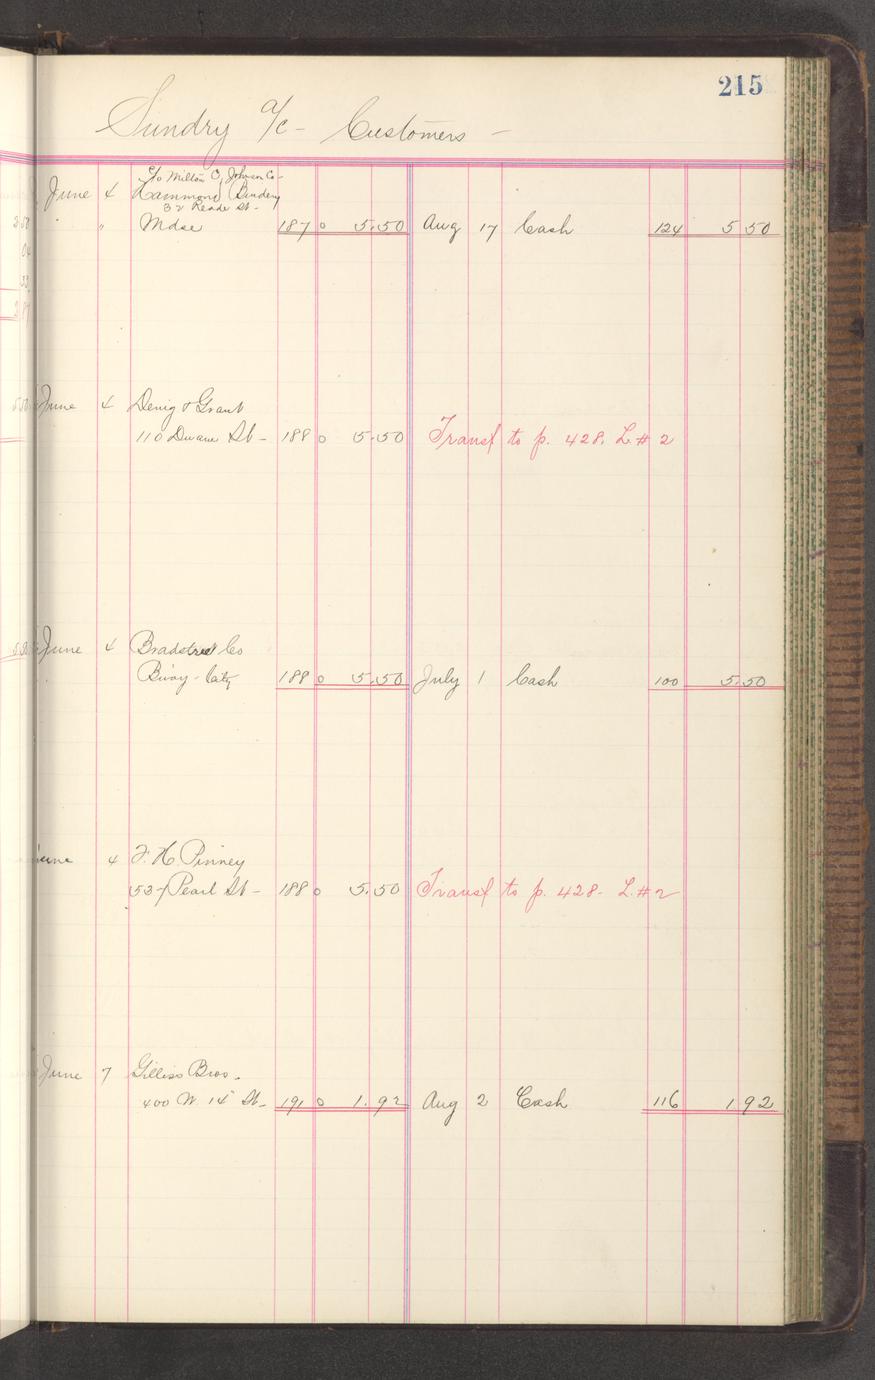 215
Sundry a/c - Customers -
c/o Milton C. Johnson Co -
June 4 Hammond Bindery
32 Reade St -
" " Mdse 187 0 5.50 Aug 17 Cash 124 5 50
June 4 Denig & Grant
110 Duane St - 188 0 5.50 Transf to p. 428. L. # 2
June 4 Bradstreet Co
B'way - City 188 0 5.50 July 1 Cash 100 5.50
June 4 F. H. Pinney
537 Pearl St - 188 0 5.50 Transf to p. 428 - L. # 2
June 7 Gilliss Bros.
400 W. 14" St - 191 0 1.92 Aug 2 Cash 116 1 92